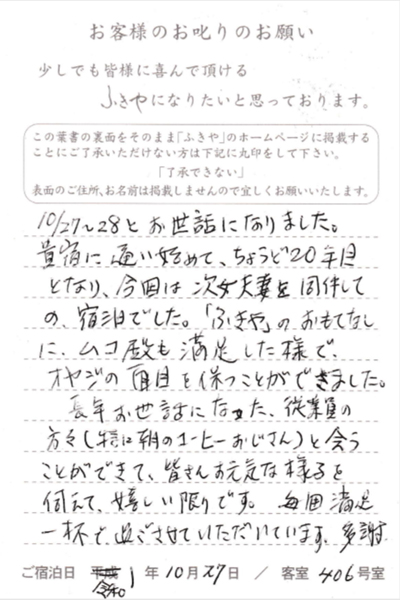 お客様のお叱りのお願い
少しでも皆様に喜んで頂ける
ふきやになりたいと思っております。
この葉書の裏面をそのまま「ふきや」のホームページに掲載する
ことにご了承いただけない方は下記に丸印をして下さい。
「了承できない」
表面のご住所、お名前は掲載しませんので宜しくお願いいたします。
10/27〜28とお世話になりました。
貴宿に通い始めて、ちょうど20年目
となり、今回は次女夫妻を同伴して
の、宿泊でした。「ふきや」のおもてなし
に、ムコ殿も満足した様で、
オヤジの面目を保つことができました。
長年お世話になった、従業員の
方々(特に朝のコーヒーおじさん)と会う
ことができて、皆さんお元気な様子を
伺えて、嬉しい限りです。毎回満足
一杯で過ごさせていただいています。多謝
ご宿泊日 平成 令和 1 年 10 月 27 日 / 客室 406 号室